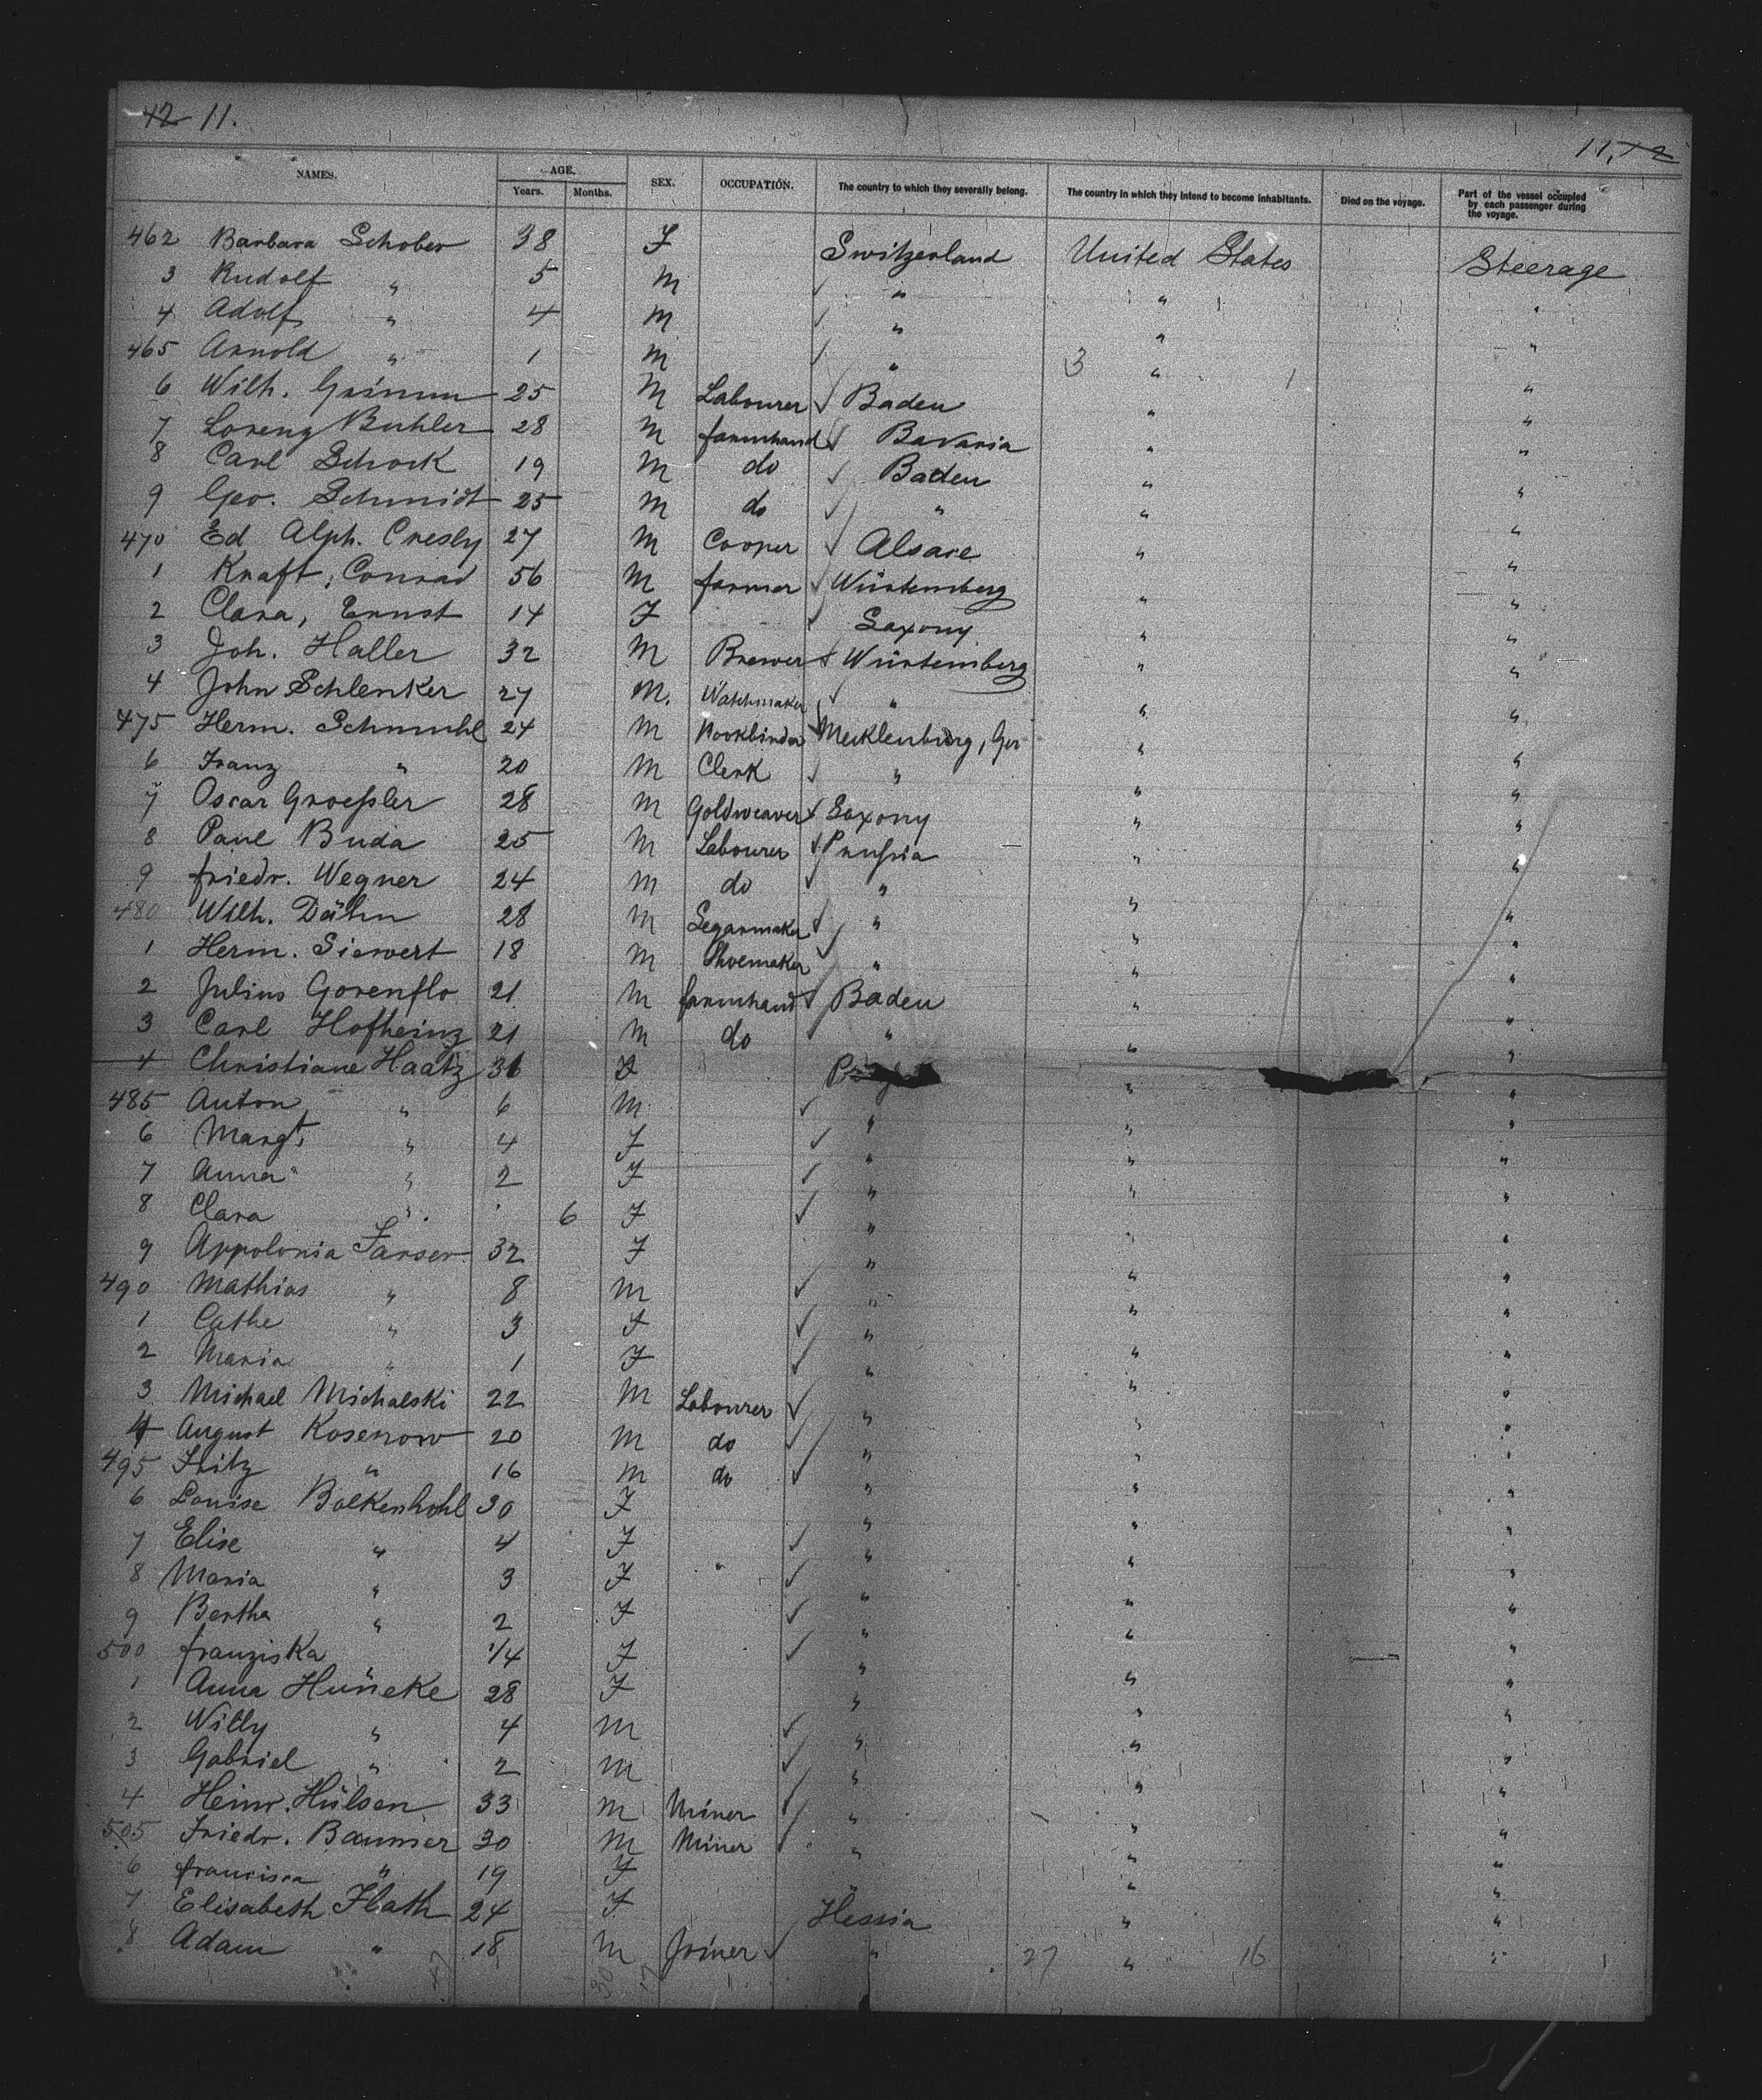 12 11.
11, 12
NAMES. AGE. Years. Months. SEX. OCCUPATION. The country to which they severally belong. The country in which they intend to become inhabitants. Died on the voyage. Part of the vessel occupied by each passenger during the voyage.
462 Barbara Schober 38 F Switzerland United States Steerage
3 Rudolf " 5 M " " "
4 Adolf " 4 M " " "
465 Arnold " 1 M " 3 " 1 "
6 Wilh. Grimm 25 M Labourer Baden " "
7 Lorenz Buhler 28 M farmhand Bavaria " "
8 Carl Schock 19 M do Baden " "
9 Geo. Schmidt 25 M do " " "
470 Ed Alph. Cresly 27 M Cooper Alsace " "
1 Kraft, Conrad 56 M farmer Würtemberg " "
2 Clara, Ernst 14 F Saxony " "
3 Joh. Haller 32 M Brewer Würtemberg " "
4 John Schlenker 27 M. Watchmaker " " "
475 Herm. Schmuhl 24 M Bookbinder Mecklenburg, Ger " "
6 Franz " 20 M Clerk " " "
7 Oscar Groeſsler 28 M Goldweaver Saxony " "
8 Paul Buda 25 M Labourer Pruſsia " "
9 friedr. Wegner 24 M do " " "
480 Wilh. Dähn 28 M Segarmaker " " "
1 Herm. Siewert 18 M Shoemaker " " "
2 Julius Gorenflo 21 M farmhand Baden " "
3 Carl Hofheinz 21 M do " " "
4 Christiane Haatz 36 F " "
485 Anton " 6 M " " "
6 Margt. " 4 F " " "
7 Anna " 2 F " " "
8 Clara " 6 F " " "
9 Appolonia Farser 32 F " " "
490 Mathias " 8 M " " "
1 Cathe " 3 F " " "
2 Maria " 1 F " " "
3 Michael Michalski 22 M Labourer " " "
4 August Kosenow 20 M do " " "
495 Fritz " 16 M do " " "
6 Louise Bolkenhohl 30 F " " "
7 Elise " 4 F " " "
8 Maria " 3 F " " "
9 Bertha " 2 F " " "
500 franziska " 1/4 F " " "
1 Anna Hüneke 28 F " " "
2 Willy " 4 M " " "
3 Gabriel " 2 M " " "
4 Heinr. Hülsen 33 M Miner " " "
505 Friedr. Baumer 30 M Miner " " "
6 francisca " 19 F " " "
7 Elisabeth Flath 24 F Hessia " "
8 Adam " 18 M Joiner " 27 " 16 "
47 30 17